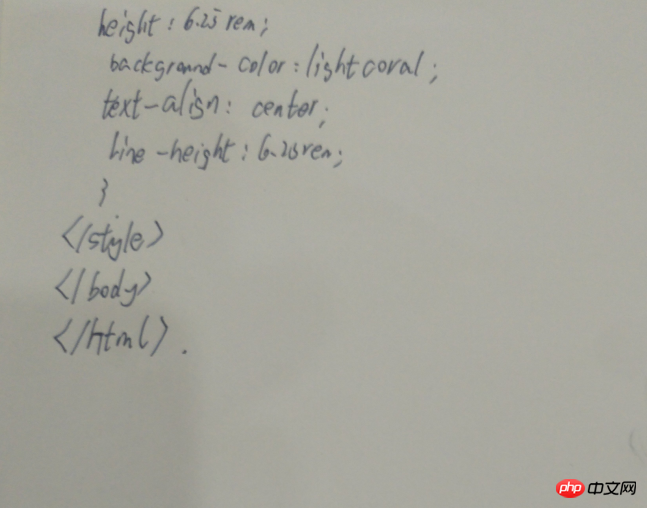 height: 6.25 rem;
background-color: lightcoral;
text-align: center;
line-height: 6.25rem;
}
</style>
</body>
</html>.
php 中文网